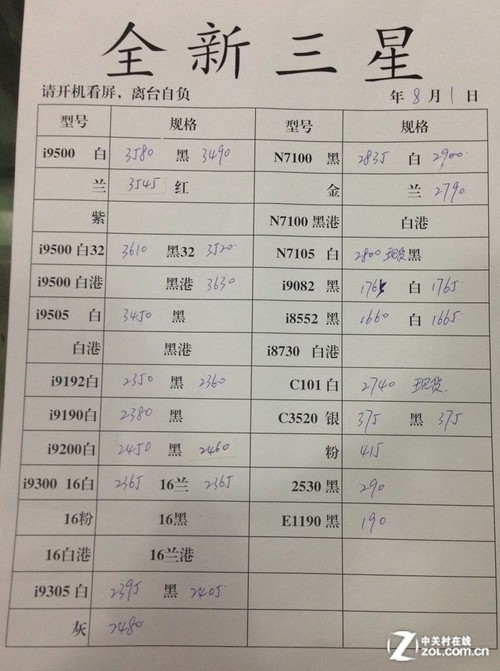 全新三星
请开机看屏，离台自负 年 8 月 1 日
型号 规格 型号 规格
i9500 白 3580 黑 3490 N7100 黑 2835 白 2900
兰 3545 红 金 兰 2790
紫 N7100 黑港 白港
i9500 白32 3610 黑32 3520 N7105 白 2800 现货 黑
i9500 白港 黑港 3630 i9082 黑 1765 白 1765
i9505 白 3450 黑 i8552 黑 1660 白 1665
白港 黑港 i8730 白港
i9192白 2350 黑 2360 C101 白 2740 现货
i9190白 2380 黑 C3520 银 375 黑 375
i9200白 2450 黑 2460 粉 415
i9300 16白 2365 16兰 2365 2530 黑 290
16粉 16黑 E1190 黑 190
16白港 16兰港
i9305 白 2395 黑 2405
灰 2480
Z 中关村在线
zol.com.cn